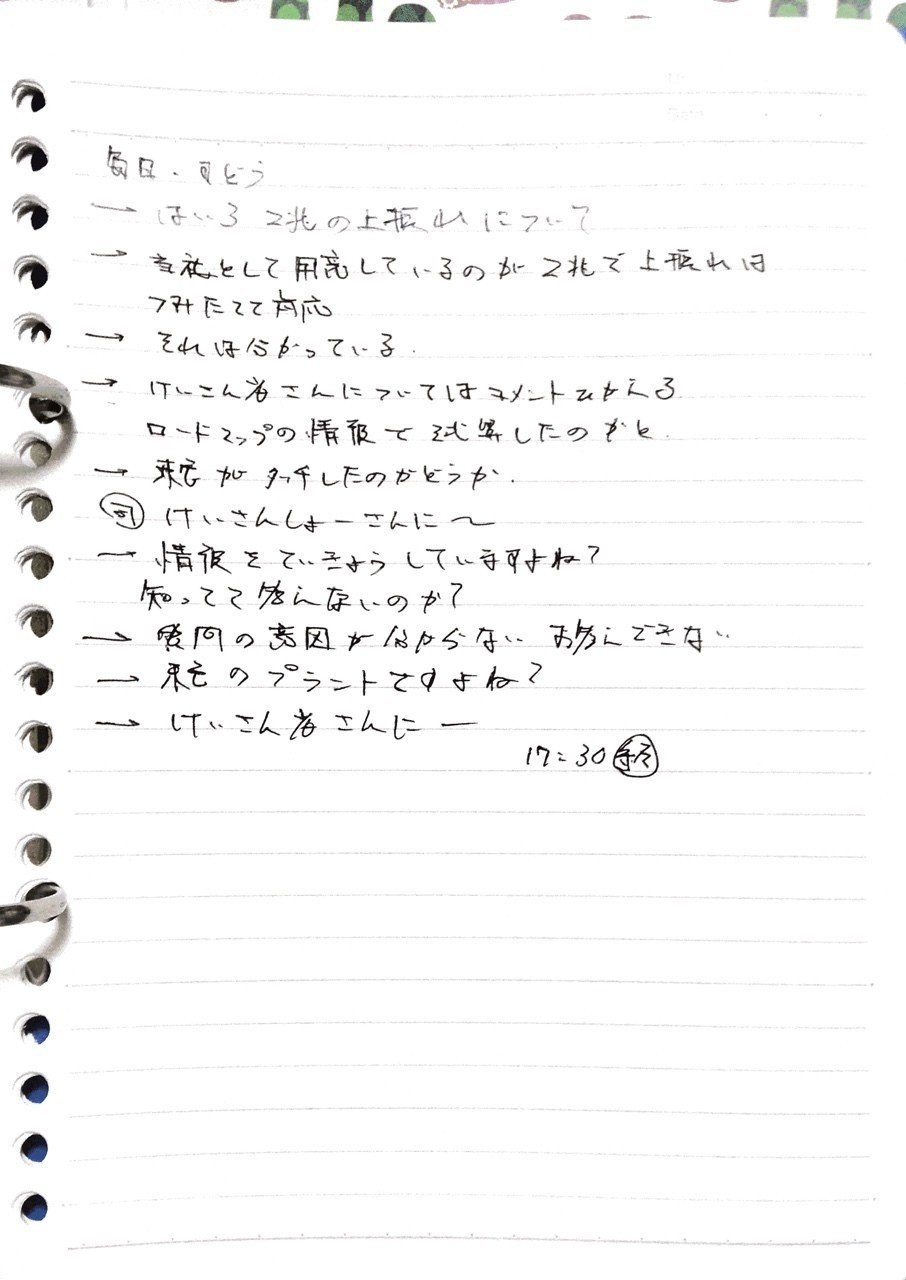 毎日・すどう
→ はいろ 2兆の上振れについて
→ 当社として用意しているのが2兆で上振れは
つみたてて対応
→ それは分かっている.
→ けいさん省さんについてはコメントひかえる
ロードマップの情報で試算したのかと
→ 東電がタッチしたのかどうか.
司 けいさんしょーさんに〜
→ 情報をていきょうしていますよね?
知ってて答えないのか?
→ 質問の意図が分からない お答えできない
→ 東電のプラントですよね?
→ けいさん省さんに ―
17:30 終